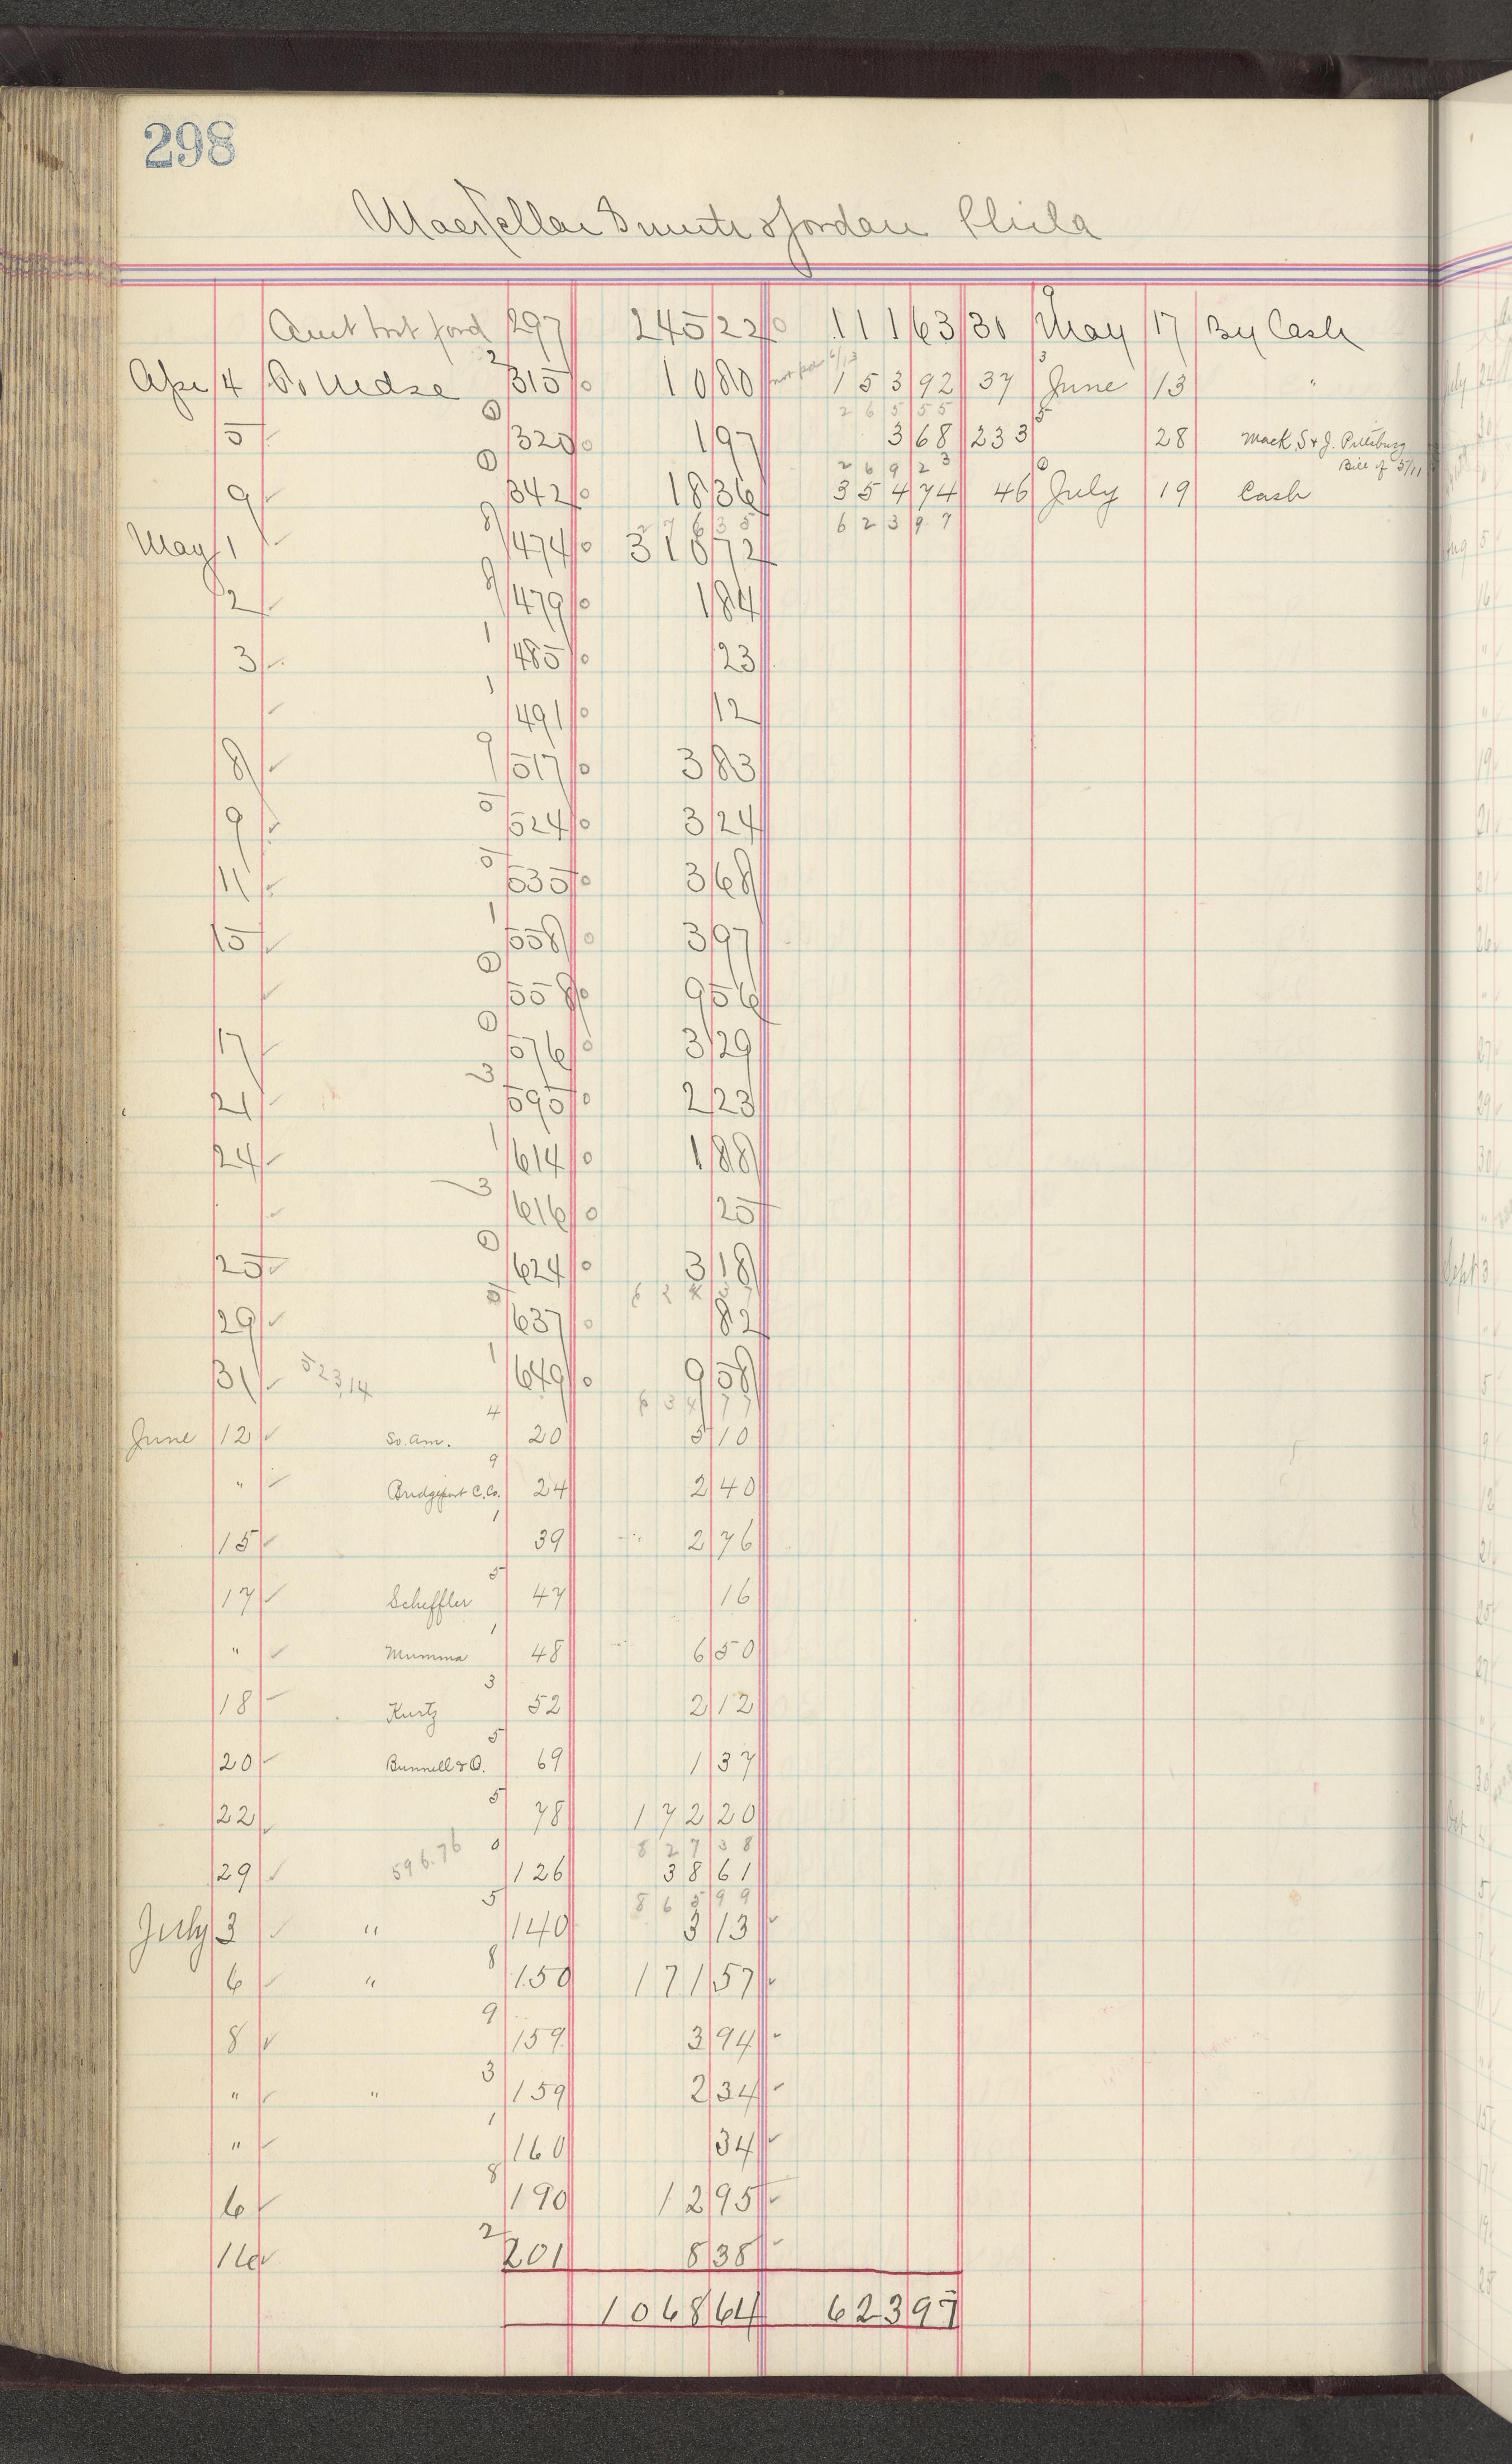 298
MacKellar Smith & Jordan Phila
Amt brt ford 297 245 22 111 63 30 May 17 By Cash
Apr 4 To Mdse 2 315 10 80 not for 6/13 153 92 37 June 13 "
265 55
5 320 1 97 3 68 233 28 Mack, S & J. Pittsburg
Bill of 5/11
269 23
9 342 18 36 354 74 46 July 19 Cash
276 35 623 97
May 1 8 474 310 72
2 8 479 1 84
3 1 485 23
1 491 12
8 9 517 3 83
9 5 524 3 24
11 5 535 3 68
15 1 558 3 97
558 9 56
17 576 3 29
21 3 595 2 23
24 1 614 1 88
3 616 25
25 624 3 18
29 637 82
31 523,14 1 649 9 58
634 77
June 12 So. Am. 4 20 5 10
" Bridgeport C. Co. 9 24 2 40
15 1 39 2 76
17 Scheffler 5 47 16
" Mumma 1 48 6 50
18 Kurtz 3 52 2 12
20 Bunnell & O. 5 69 1 37
22 5 78 172 20
827 38
29 596.76 0 126 38 61
865 99
July 3 " 5 140 3 13
6 " 8 150 171 57
8 9 159 3 94
" " 3 159 2 34
" 1 160 34
6 8 190 12 95
16 2 201 8 38
1068 64 623 97